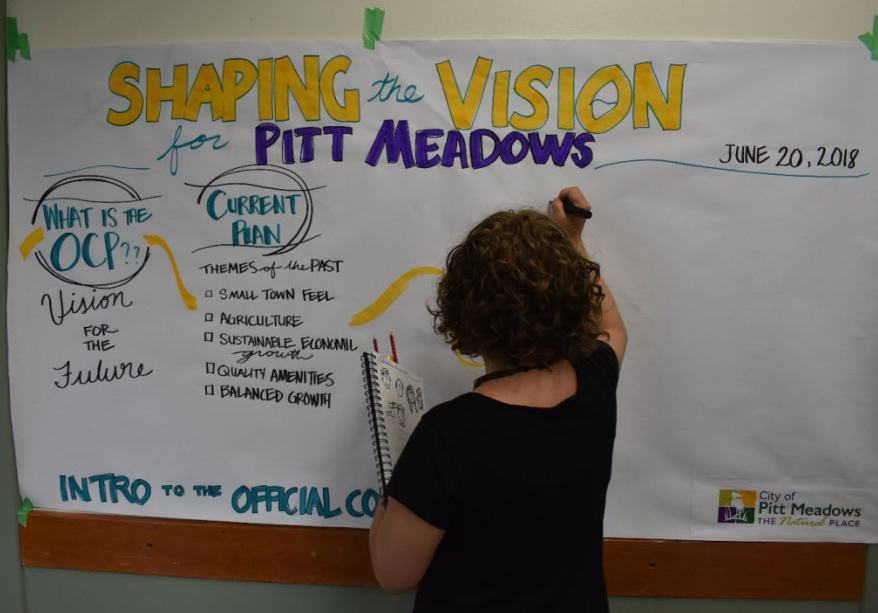 SHAPING the VISION
for PITT MEADOWS
JUNE 20, 2018
WHAT IS THE
OCP??
Vision
FOR
THE
Future
CURRENT
PLAN
THEMES of the PAST
SMALL TOWN FEEL
AGRICULTURE
SUSTAINABLE ECONOMIC
growth
QUALITY AMENITIES
BALANCED GROWTH
INTRO TO THE OFFICIAL CO
City of
Pitt Meadows
THE Natural PLACE